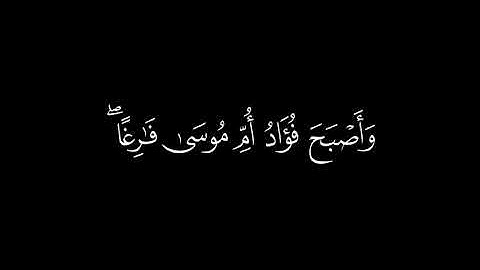 وَأَصْبَحَ فُؤَادُ أُمِّ مُوسَىٰ فَـٰرِغًا ۖ